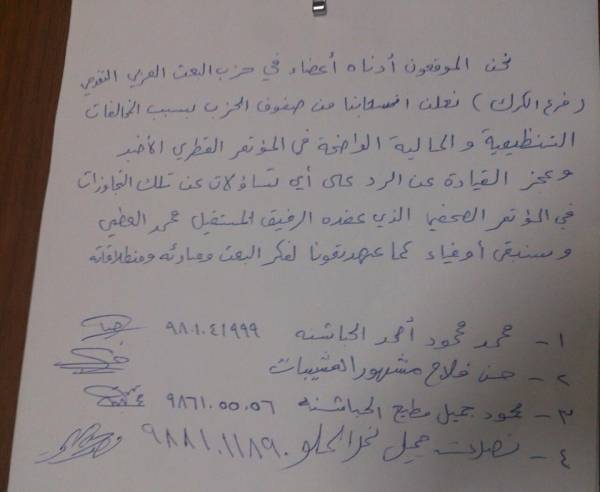 نحن الموقعون أدناه أعضاء في حزب البعث العربي التقدمي
(فرع الكرك) نعلن انسحابنا من صفوف الحزب بسبب المخالفات
التنظيمية والمالية الواضحة في المؤتمر القطري الأخير
وعجز القيادة عن الرد على أي تساؤلات عن تلك التجاوزات
في المؤتمر الصحفي الذي عقده الرفيق المستقيل محمد
وسنبقى أوفياء كما عهدتمونا لفكر البعث ومبادئه ومنطلقاته
١- محمد محمود أحمد الحباشنه ٩٨٠١٠٤١٩٩٩
٢- حسن فلاح مشهور
٣- محمود جميل مطيع الحباشنه ٩٨٦١٠٥٥٠٥٦
٤- جميل ٩٨٨١٠١١٨٩٠